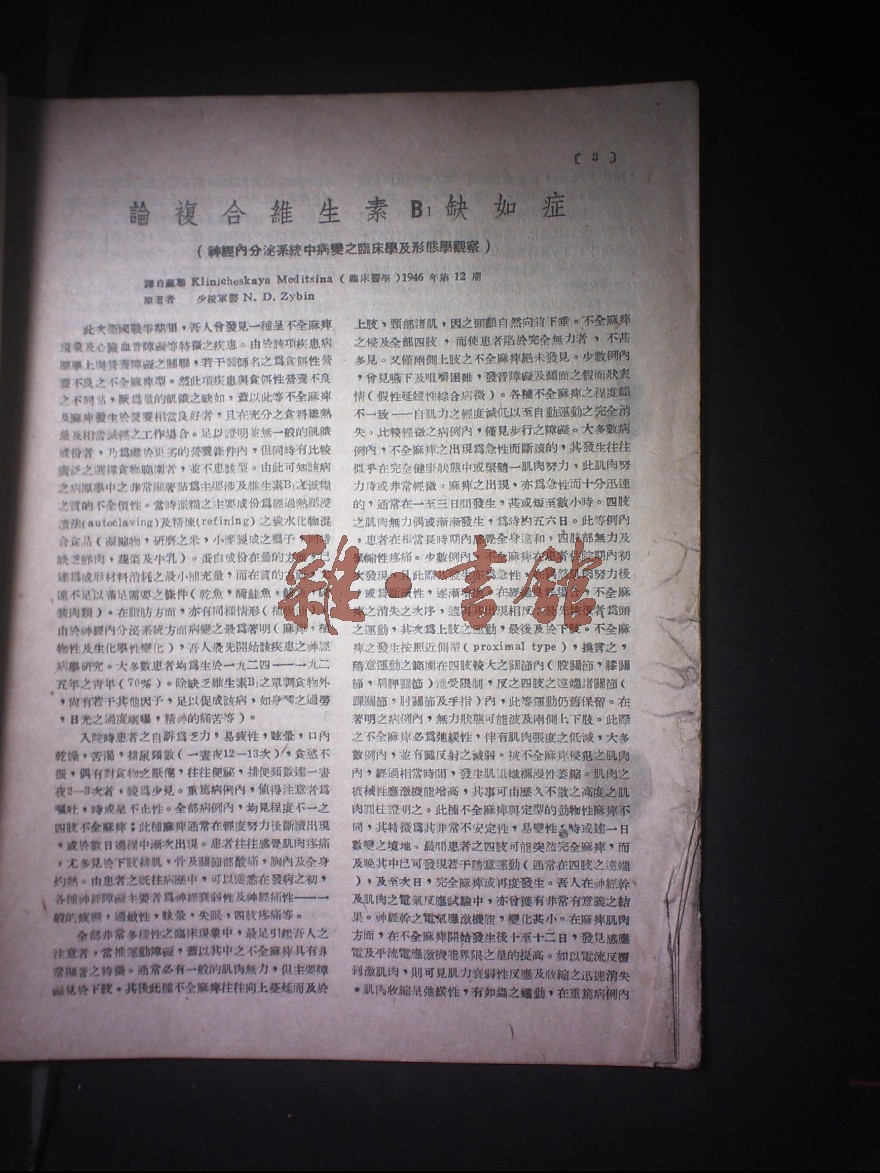 〔 3 〕
論複合維生素B1缺如症
（神經內分泌系統中病變之臨床學及形態學觀察）
譯自蘇聯 Klinicheskaya Meditsina（臨床醫學）1946 年第 12 期
原著者 少校軍醫 N. D. Zybin
此次衛國戰爭期間，吾人曾發見一種呈不全麻痺
現象及心臟血管障礙等特徵之疾患。由於該項疾患病
原學上與營養障礙之關聯，若干醫師名之爲食餌性營
養不良之不全麻痺型。然此項疾患與食餌性營養不良
之不同點，厥爲量的飢饑之缺如，蓋以此等不全麻痺
及麻痺發生於營養相當良好者，且在充分之食料總熱
量及相當減輕之工作場合。足以證明並無一般的飢餓
成份者，乃爲處於更劣的營養條件內，但同時有比較
廣泛之選擇食物範圍者，並不患該型。由此可知該病
之病原學中之非常顯著點爲主要涉及維生素B1之派糧
之質的不全價性。當時派糧之主要成份爲經過熱壓浸
漬法(autoclaving)及精煉(refining)之碳水化物混
合食品（凝縮物，研磨之米，小麥製成之
缺乏鮮肉，蔬菜及牛乳）。蛋白成份在量的方
達爲成形材料消耗之最小補充量，而在質的方
遠不足以滿足需要之條件（乾魚，醃鮭魚，
裝肉類）。在脂肪方面，亦有同樣情形（植物
由於神經內分泌系統方面病變之最爲著明（麻痺，植
物性及生化學性變化），吾人最先開始該疾患之神經
病學研究。大多數患者均爲生於一九二四——一九二
五年之青年（70%）。除缺乏維生素B1之單調食物外
，尚有若干其他因子，足以促成該病，如身體之過勞
，日光之過度曝曬，精神的痛苦等）。
入院時患者之自訴爲乏力，易疲性，眩暈，口內
乾燥，苦渴，排尿頻數（一晝夜12—13次），食慾不
振，偶有對食物之厭惡，往往便祕，排便頻數達一晝
夜2—3次者，較爲少見。重篤病例內，值得注意者爲
嘔吐，時或呈不止性。全部病例內，均見程度不一之
四肢不全麻痺；此種麻痺通常在輕度努力後斷續出現
，或於數日過程中漸次出現。患者往往感覺肌肉疼痛
，尤多見於下肢排肌，骨及關節部酸痛，胸內及全身
灼熱。由患者之既往病歷中，可以獲悉在發病之初，
各種神經障礙主要者爲神經衰弱性及神經痛性——一
般的疲憊，過敏性，眩暈，失眠，四肢疼痛等。
全部非常多樣性之臨床現象中，最足引起吾人之
注意者，當推運動障礙，蓋以其中之不全麻痺具有非
常顯著之特徵。通常必有一般的肌肉無力，但主要障
礙見於下肢。其後此種不全麻痺往往向上蔓延而及於
上肢，頸部諸肌，因之頭顱自然向前下垂。不全麻痺
之侵及全部四肢，而使患者陷於完全無力者，不甚
多見。又僅兩側上肢之不全麻痺絕未發見。少數例內
，曾見嚥下及咀嚼困難，發音障礙及顏面之假面狀表
情（假性延髓性綜合病徵）。各種不全麻痺之程度頗
不一致——自肌力之輕度減低以至自動運動之完全消
失。比較輕微之病例內，僅見步行之障礙。大多數病
例內，不全麻痺之出現爲急性而斷續的，其發生往往
似乎在完全健康狀態中或緊隨一肌肉努力，此肌肉努
力時或非常輕微。麻痺之出現，亦爲急性而十分迅速
的，通常在一至三日間發生，甚或短至數小時。四肢
之肌肉無力偶或漸漸發生，爲時約五六日。此等例內
，患者在相當長時期內感覺全身違和，四肢部無力及
攣縮性疼痛。少數例內，不全麻痺在患者住院期內初
次發現，且此際之發生亦爲急性，
，或爲斷續性，逐漸增
痺之消失之次序，適與其出現相反：最先恢復者爲頭
之運動，其次爲上肢之運動，最後及於下肢。不全麻
痺之發生按照近側型(proximal type)，換言之，
隨意運動之範圍在四肢較大之關節內（股關節，膝關
節，肩胛關節）遭受限制，反之四肢之遠端諸關節（
踝關節，肘關節及手指）內，此等運動仍舊保留。在
著明之病例內，無力狀態可能波及兩側上下肢。此際
之不全麻痺必爲弛緩性，伴有肌肉張度之低減，大多
數例內，並有腱反射之減弱。被不全麻痺侵犯之肌肉
內，經過相當時間，發生肌組織瀰漫性萎縮。肌肉之
機械性應激機能增高，其事可由歷久不散之高度之肌
肉圓柱證明之。此種不全麻痺與定型的動物性麻痺不
同，其特徵爲其非常不安定性，易變性，時或達一日
數變之境地。晨間患者之四肢可能突然完全麻痺，而
及晚其中已可發現若干隨意運動（通常在四肢之遠端
），及至次日，完全麻痺或再度發生。吾人在神經幹
及肌肉之電氣反應試驗中，亦曾獲有非常有意義之結
果。神經幹之電氣應激機能，變化甚小。在麻痺肌肉
方面，在不全麻痺開始發生後十至十二日，發見感應
電及平流電應激機能界限之量的提高。如以電流反覆
刺激肌肉，則可見肌力衰弱性反應及收縮之迅速消失
。肌肉收縮呈弛緩性，有如蟲之蠕動，在重篤病例內
雜·書館